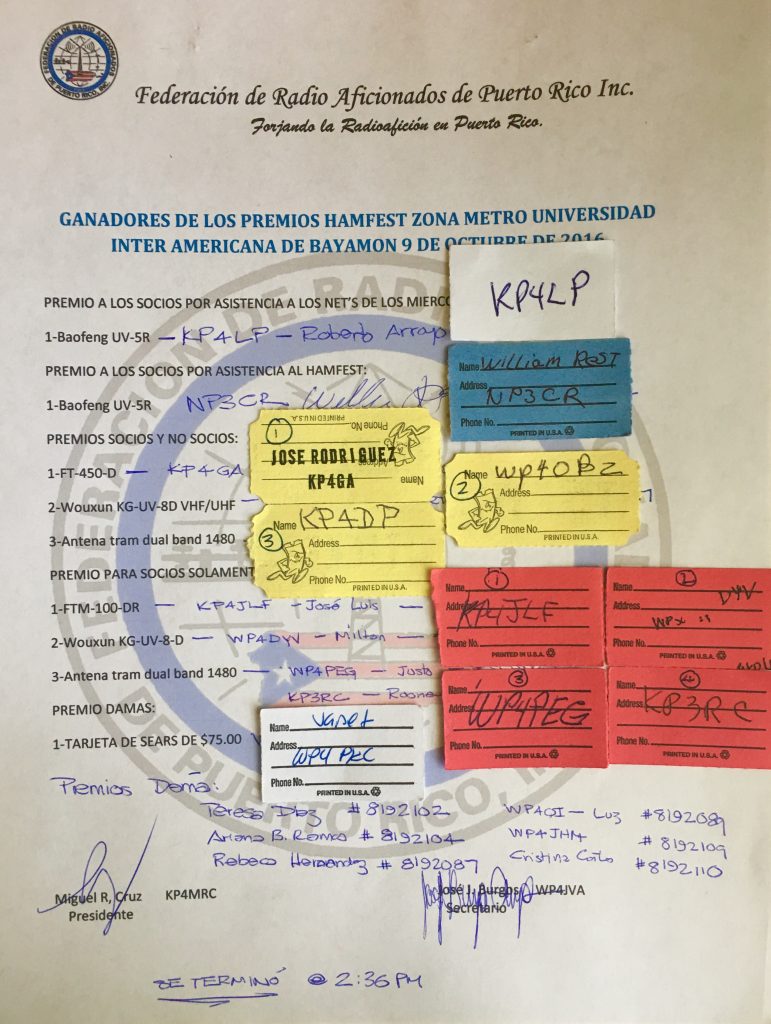 FEDERACION DE RADIO AFICIONADOS DE PUERTO RICO, INC.
Federación de Radio Aficionados de Puerto Rico Inc.
Forjando la Radioafición en Puerto Rico.
GANADORES DE LOS PREMIOS HAMFEST ZONA METRO UNIVERSIDAD
INTER AMERICANA DE BAYAMON 9 DE OCTUBRE DE 2016
KP4LP
PREMIO A LOS SOCIOS POR ASISTENCIA A LOS NET'S DE LOS MIERC
1-Baofeng UV-5R — KP4LP — Roberto Arroyo
PREMIO A LOS SOCIOS POR ASISTENCIA AL HAMFEST:
Name William
Address
NP3CR
Phone No.
PRINTED IN U.S.A.
1-Baofeng UV-5R NP3CR
PREMIOS SOCIOS Y NO SOCIOS:
1 Phone No. PRINTED IN U.S.A.
JOSE RODRIGUEZ
Address
KP4GA
Name
1-FT-450-D — KP4GA
Name WP4OBZ
2 Address
Phone No.
PRINTED IN U.S.A.
2-Wouxun KG-UV-8D VHF/UHF —
Name KP4DP
3 Address
Phone No.
PRINTED IN U.S.A.
3-Antena tram dual band 1480 —
PREMIO PARA SOCIOS SOLAMENT
Name 1
Address KP4JLF
Phone No.
PRINTED IN U.S.A.
Name 2
Address DYV
Phone No.
PRINTED IN U.S.A.
1-FTM-100-DR — KP4JLF — José Luis —
2-Wouxun KG-UV-8-D — WP4DYV — Milton —
3-Antena tram dual band 1480 — WP4PEG — Justo
KP3RC —
Name 3
Address WP4PEG
Phone No.
PRINTED IN U.S.A.
Name 4
Address KP3RC
Phone No.
PRINTED IN U.S.A.
PREMIO DAMAS:
1-TARJETA DE SEARS DE $75.00
Name Janet
Address
WP4PEC
Phone No.
PRINTED IN U.S.A.
Premios Dama:
Teresa Diaz # 8192102 WP4QI — Luz # 8192089
Ariana B. Ramos # 8192104 WP4JHN # 8192109
Rebeca Hernandez # 8192087 Cristina #8192110
Miguel R, Cruz KP4MRC José J. Burgos WP4JVA
Presidente Secretario
SE TERMINÓ @ 2:36 PM